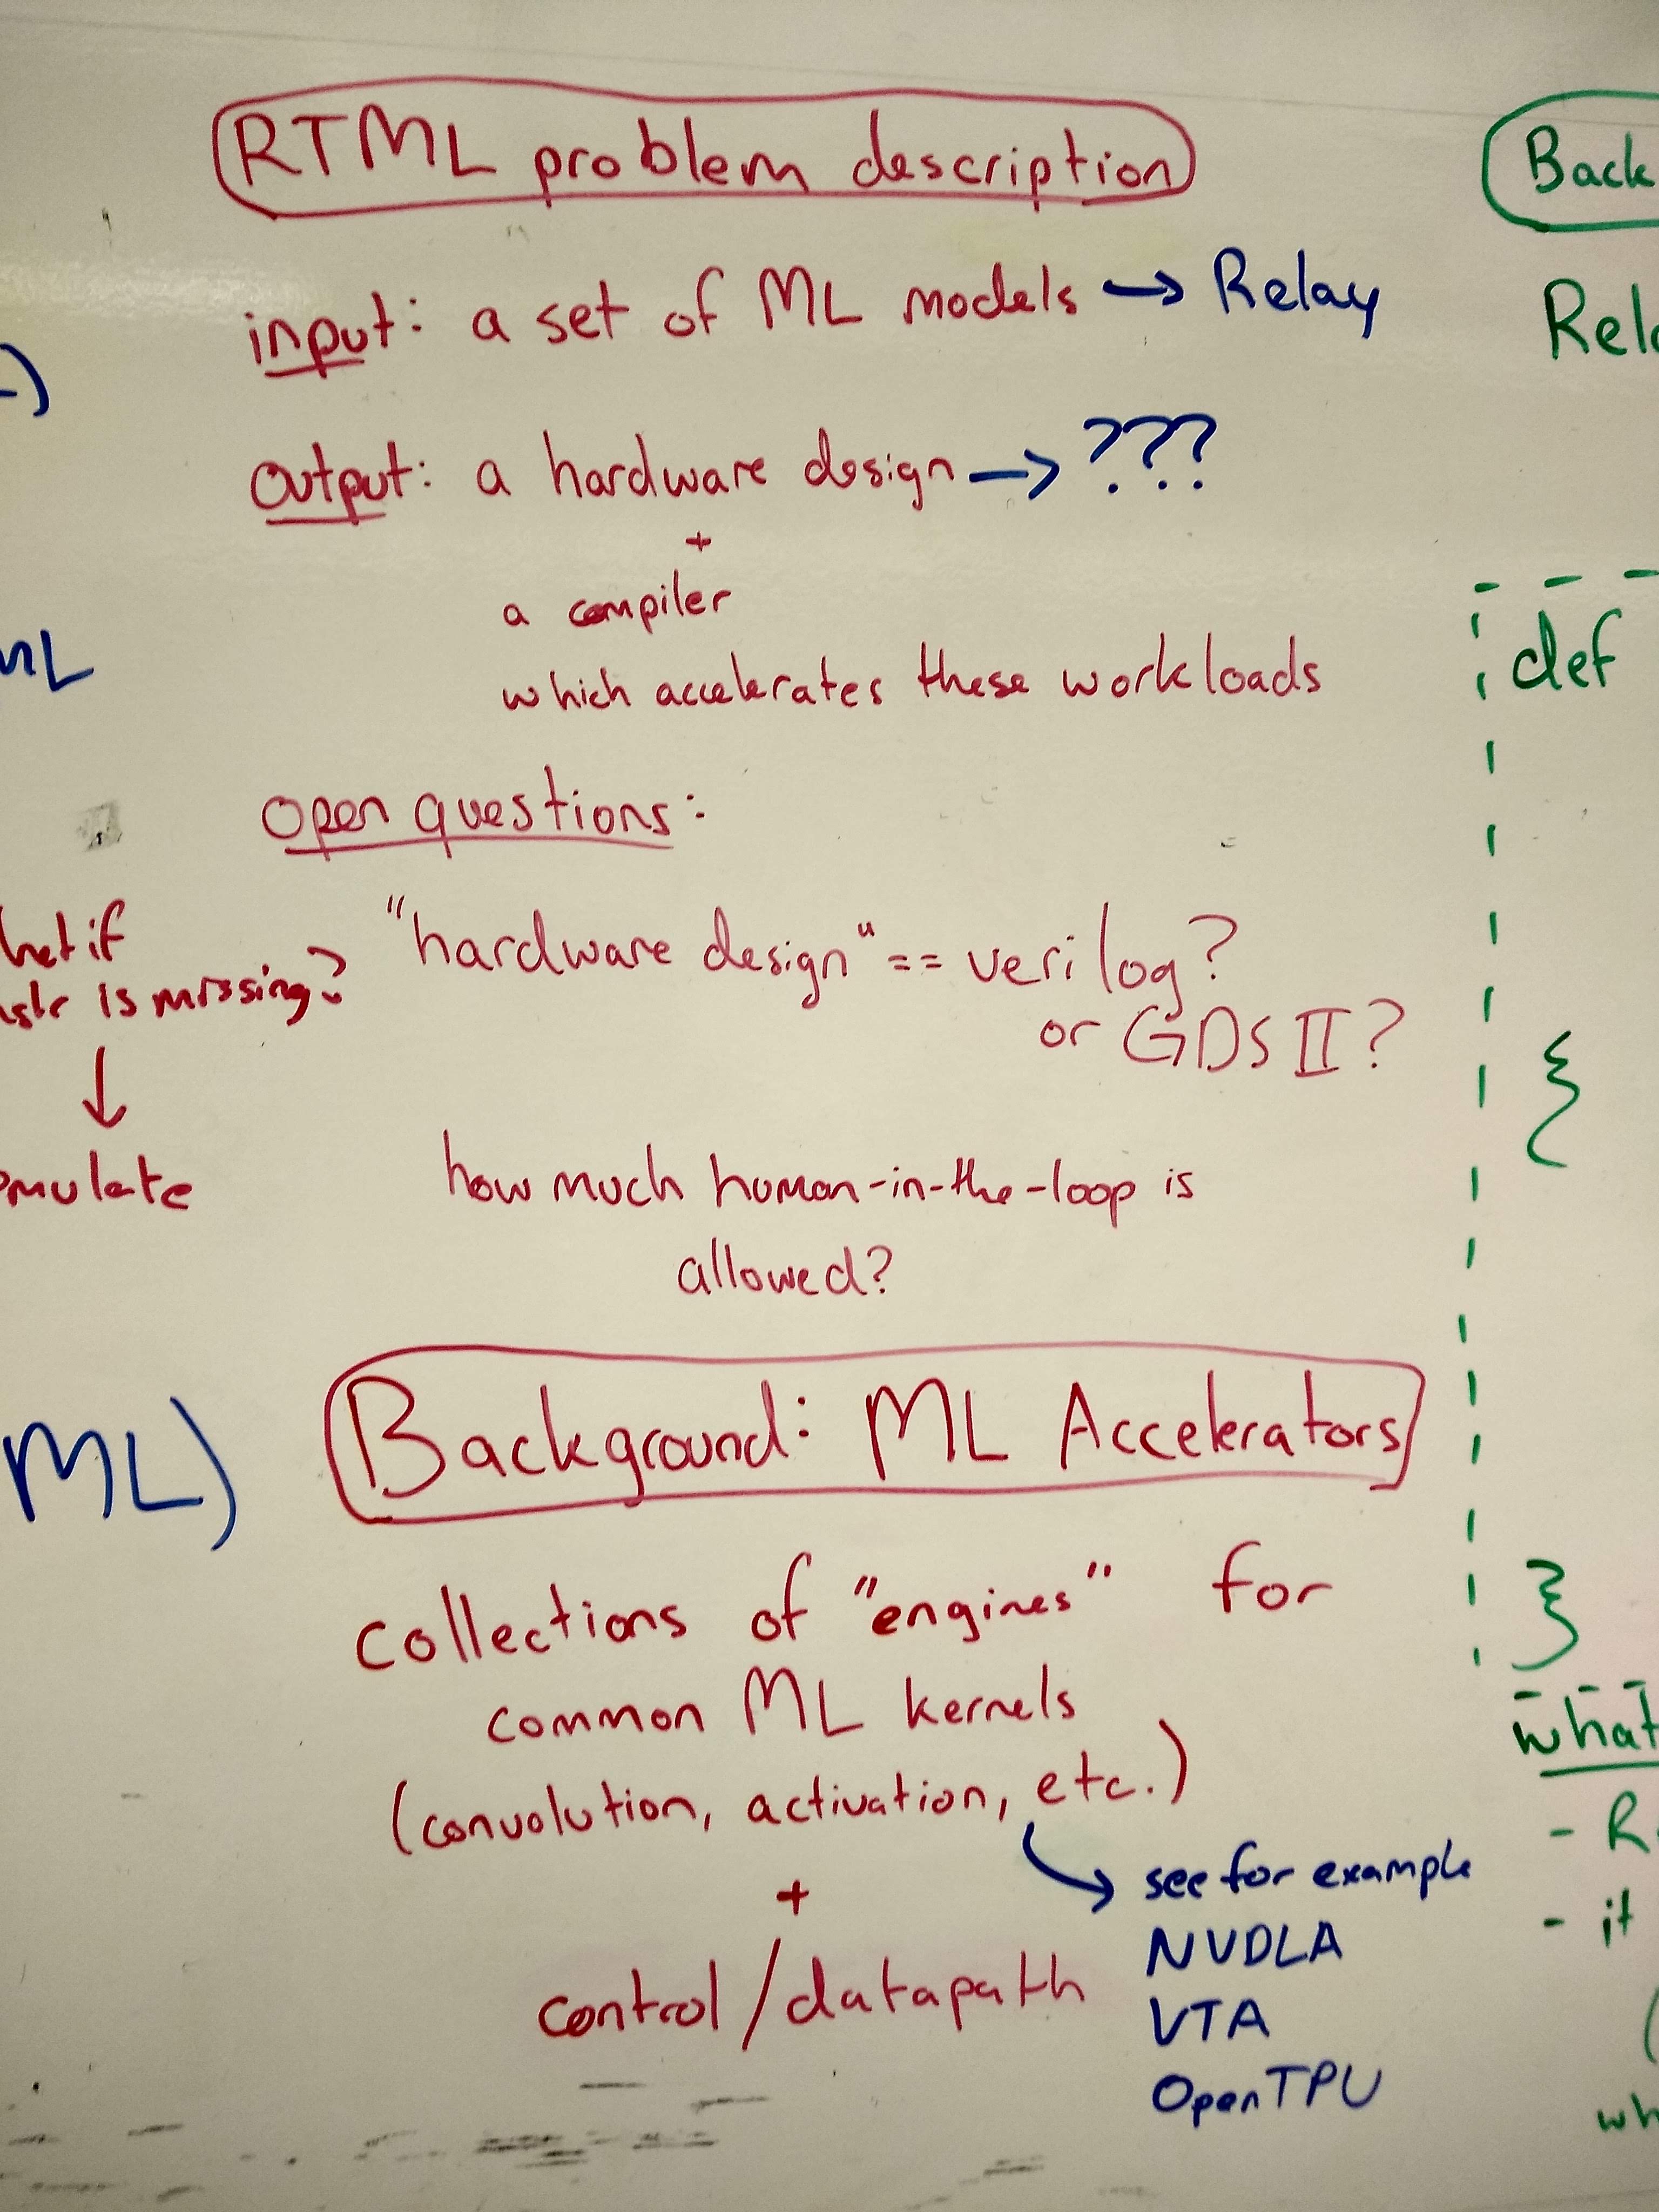 RTML problem description
input: a set of ML models → Relay
output: a hardware design → ???
+
a compiler
which accelerates these workloads
open questions:
"hardware design" == verilog?
or GDS II?
how much human-in-the-loop is
allowed?
Background: ML Accelerators
collections of "engines" for
common ML kernels
(convolution, activation, etc.)
→ see for example
NVDLA
VTA
OpenTPU
+
control/datapath
if
is missing?
↓
ML)
Back
def
{
}
what
- R
- it
(